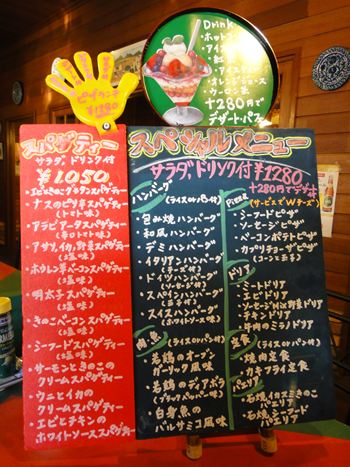 Drink
・ホットコ
・アイスコ
・紅茶
・アイスティ
・オレンジジュース
・ウーロン茶
+280円で
デザートパス
¥1280
スパゲティー
サラダ、ドリンク付
¥1050
・ナスのピリ辛スパゲティー
(トマト味)
・アラビアータスパゲティー
・アサリ、イカ、野菜スパゲティー
(塩味)
・ホウレン草ベーコンスパゲティー
・明太子スパゲティー
・きのこベーコンスパゲティー
・シーフードスパゲティー
・サーモンときのこの
クリームスパゲティー
・ウニとイカの
クリームスパゲティー
・エビとチキンの
ホワイトソーススパゲティー
スペシャルメニュー
サラダ、ドリンク付 ¥1280
+280円でデザート
ハンバーグ
(ライスorパン付)
・包み焼ハンバーグ
・和風ハンバーグ
・デミハンバーグ
・イタリアンハンバーグ
(チーズ付)
・ドイツハンバーグ
(ソーセージ付)
・スペインハンバーグ
・スイスハンバーグ
(ホワイトソース味)
肉・魚
(ライスorパン付)
・若鶏のオーブン
ガーリック風味
・若鶏のディアボラ
(ブラックペッパー味)
・白身魚の
バルサミコ風味
(サービスでWチーズ)
・シーフードピザ
・ソーセージピザ
・ベーコンポテトピザ
・カプリチョーザピザ
ドリア
・ミートドリア
・エビドリア
・ソーセージ野菜ドリア
・チキンドリア
・牛肉のミラノドリア
定食
(ライス付)
・焼肉定食
・カキフライ定食
パエリア
・石焼パエリア
・石焼シーフード
パエリア